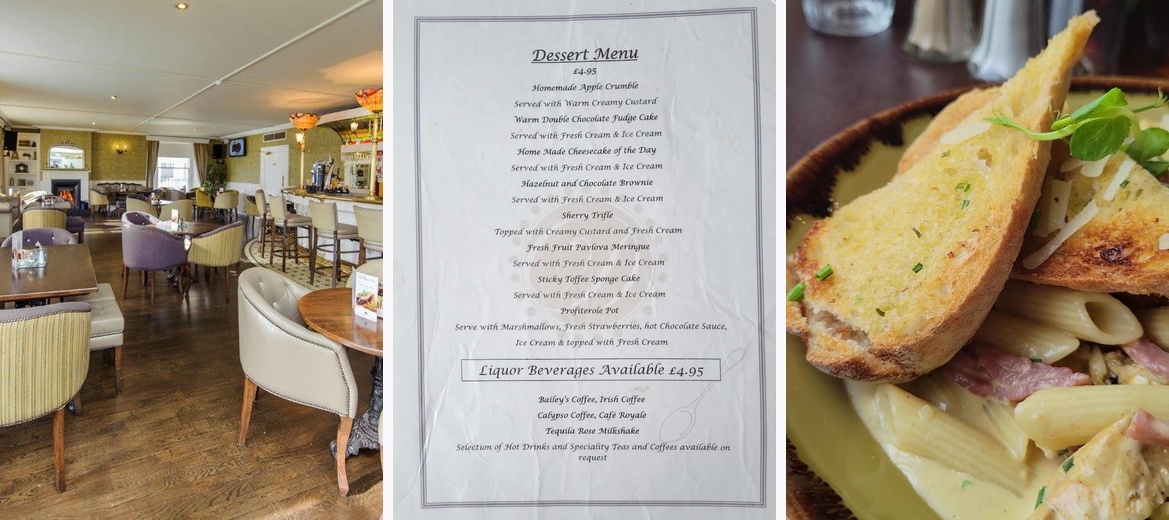 Dessert Menu
£4.95
Homemade Apple Crumble
Served with Warm Creamy Custard
Warm Double Chocolate Fudge Cake
Served with Fresh Cream & Ice Cream
Home Made Cheesecake of the Day
Served with Fresh Cream & Ice Cream
Hazelnut and Chocolate Brownie
Served with Fresh Cream & Ice Cream
Sherry Trifle
Topped with Creamy Custard and Fresh Cream
Fresh Fruit Pavlova Meringue
Served with Fresh Cream & Ice Cream
Sticky Toffee Sponge Cake
Served with Fresh Cream & Ice Cream
Profiterole Pot
Serve with Marshmallows, Fresh Strawberries, hot Chocolate Sauce,
Ice Cream & topped with Fresh Cream
Liquor Beverages Available £4.95
Bailey's Coffee, Irish Coffee
Calypso Coffee, Café Royale
Tequila Rose Milkshake
Selection of Hot Drinks and Speciality Teas and Coffees available on
request